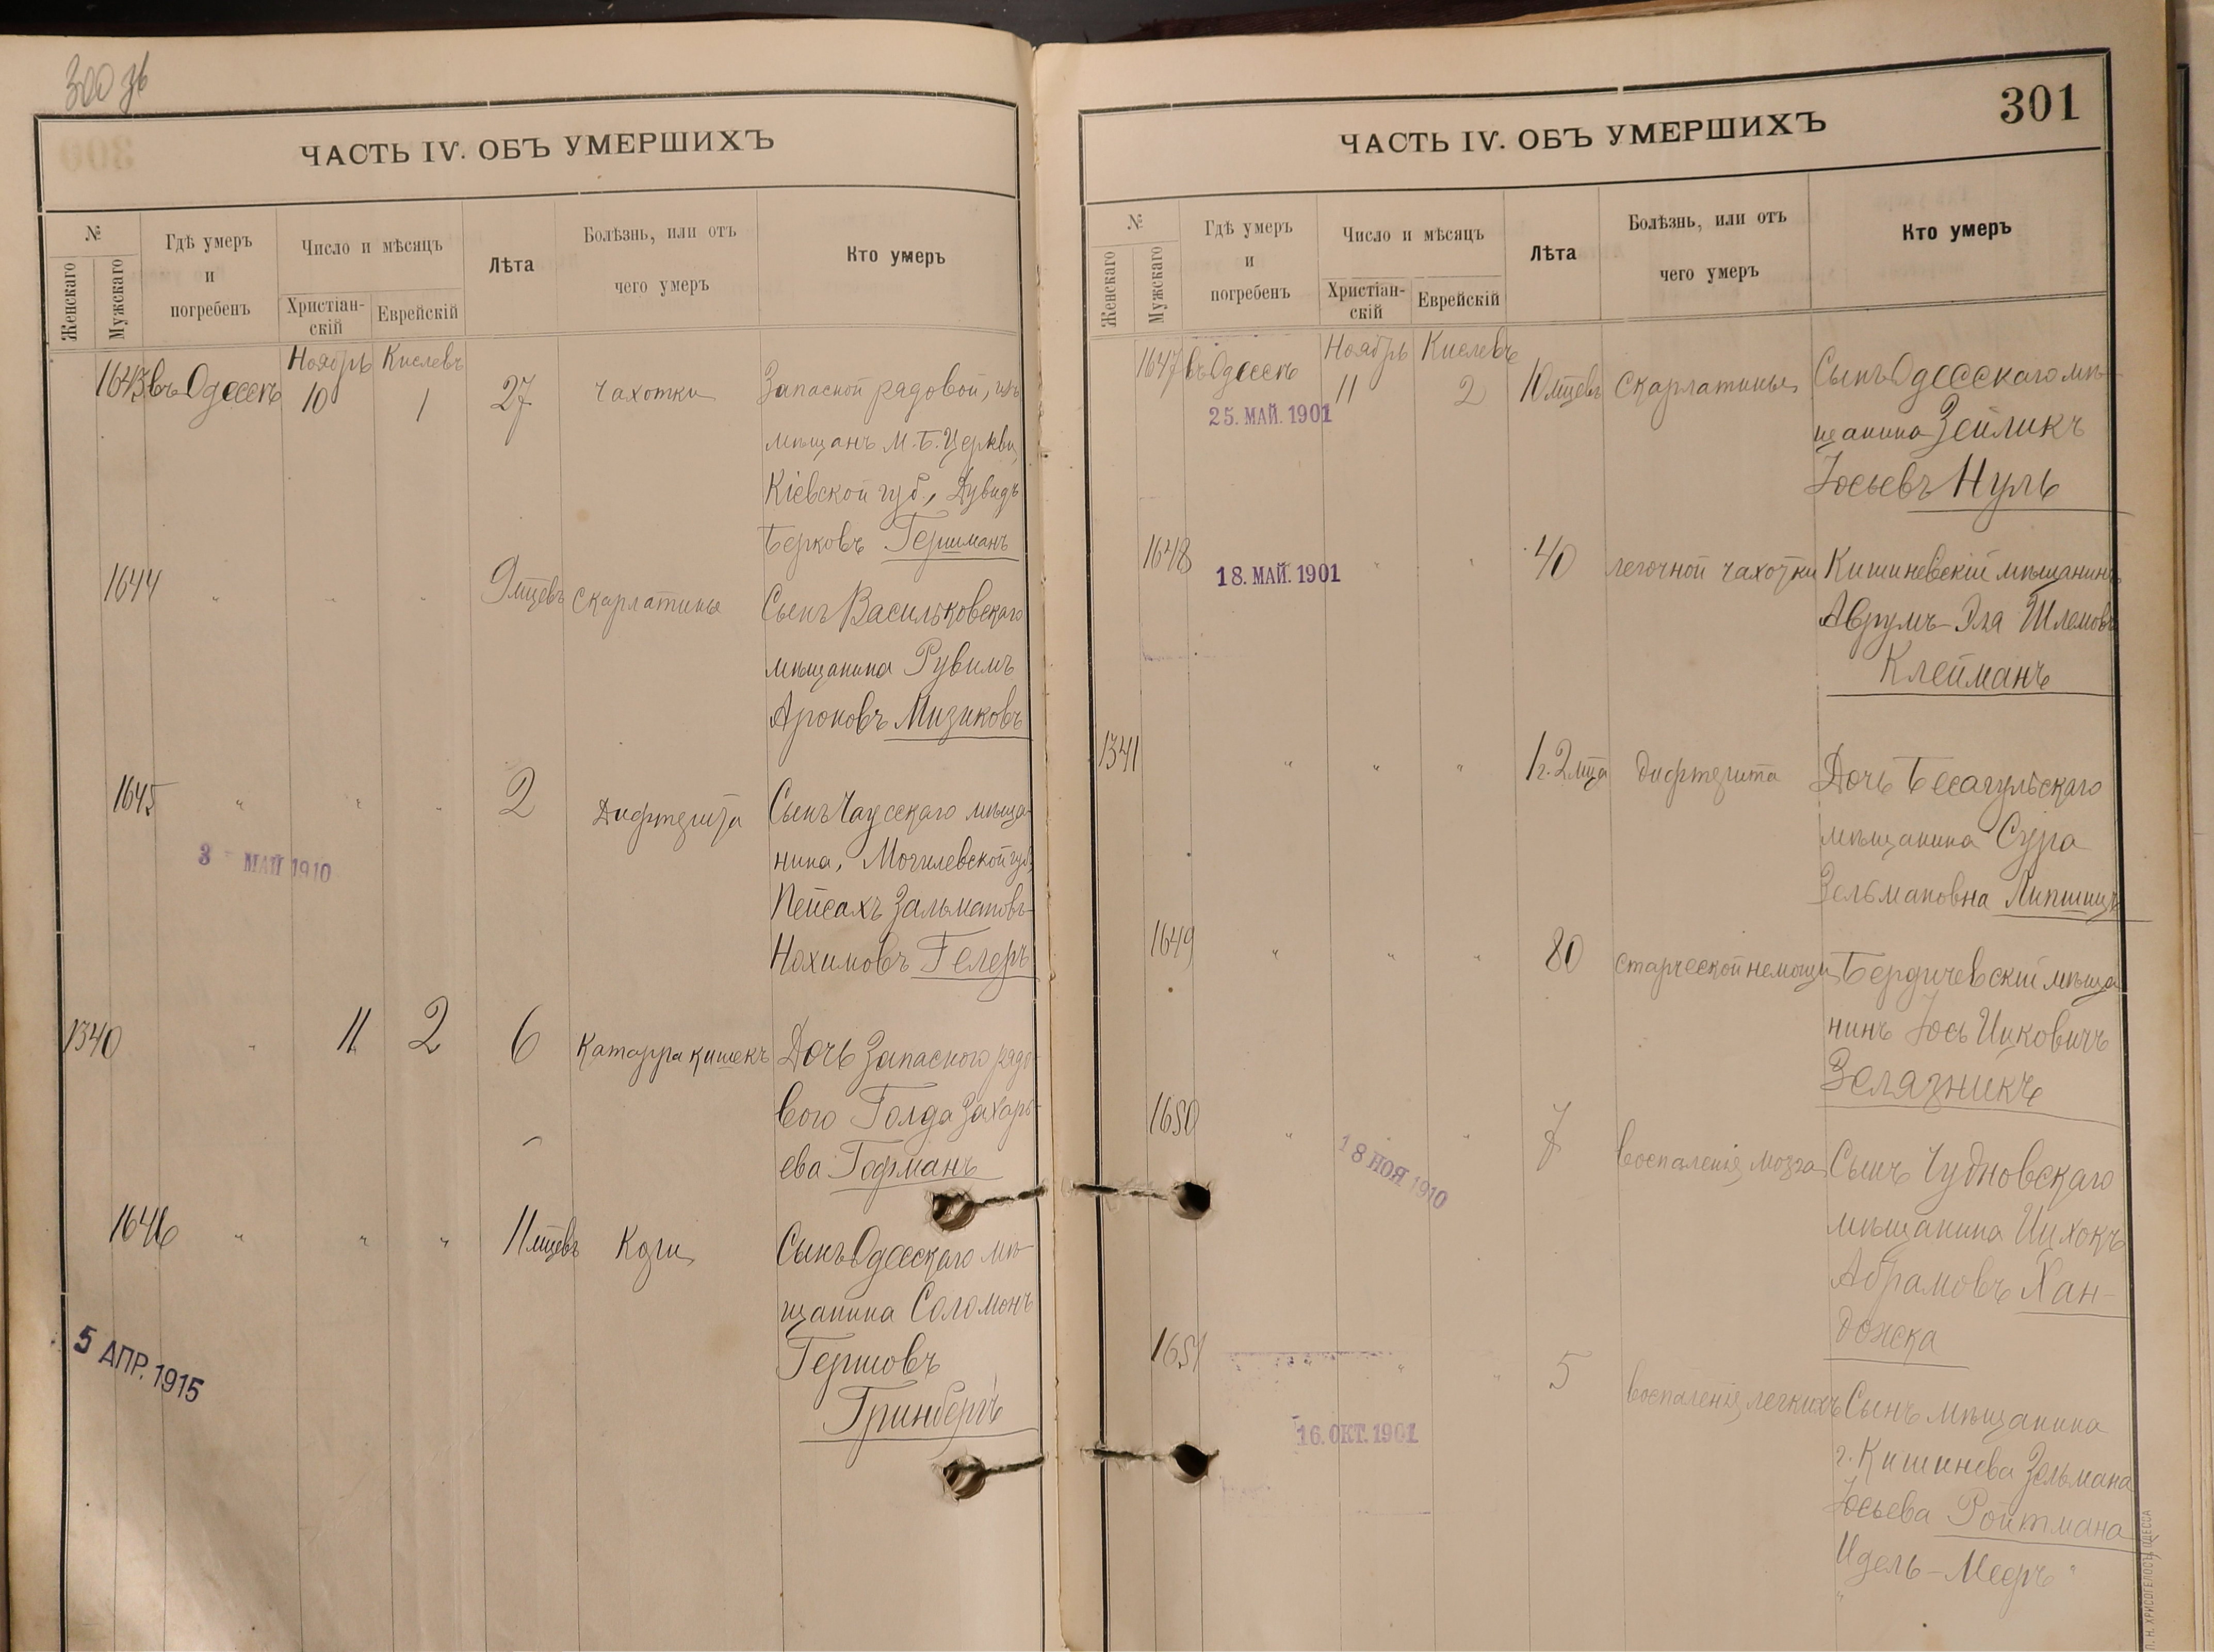 300 зв
ЧАСТЬ IV. ОБЪ УМЕРШИХЪ
№
Женскаго
Мужскаго
Гдѣ умеръ
и
погребенъ
Число и мѣсяцъ
Христіан-
скій
Еврейскій
Лѣта
Болѣзнь, или отъ
чего умеръ
Кто умеръ
Ноябрь Кислевъ
1643 въ Одессѣ 10 1 27 чахотки Запасной рядовой, изъ
мѣщанъ М. Б. Церкви,
Кіевской губ., Дувидъ
Берковъ Гершманъ
1644 " " " 9 мцевъ скарлатины Сынъ Васильковскаго
мѣщанина Рувимъ
Ароновъ Мизиковъ
1645 " " " 2 Дифтерита Сынъ Чаусскаго мѣща-
нина, Могилевской губ.,
Пейсахъ Зальмановъ-
Нохимовъ Гелеръ
3 - МАЙ 1910
1340 " 11 2 6 Катарра кишекъ Дочь Запаснаго рядо-
вого Голда Захарь-
ева Гофманъ
1646 " " " 11 мцевъ Кори Сынъ Одесскаго мѣ-
щанина Соломонъ
Гершовъ
Гринбергъ
5 АПР. 1915
301
ЧАСТЬ IV. ОБЪ УМЕРШИХЪ
№
Женскаго
Мужскаго
Гдѣ умеръ
и
погребенъ
Число и мѣсяцъ
Христіан-
скій
Еврейскій
Лѣта
Болѣзнь, или отъ
чего умеръ
Кто умеръ
Ноябрь Кислевъ
1647 въ Одессѣ 11 2 10 мцевъ скарлатины Сынъ Одесскаго мѣ-
щанина Зейликъ
Іосьевъ Нуль
25. МАЙ. 1901
1648 " " 40 легочной чахотки Кишиневскій мѣщанинъ
Аврумъ-Эля Шлемовъ
Клейманъ
18. МАЙ. 1901
1341 " " " 1 г. 2 мца дифтерита Дочь
мѣщанина Сура
Зельмановна Липшицъ
1649 " " " 80 старческой немощи Бердичевскій мѣща
нинъ Іось Ицковичъ
Зелязникъ
1650 " " 7 воспаленія мозга Сынъ Чудновскаго
мѣщанина Ицхокъ
Абрамовъ Хан-
дожка
18 НОЯ 1910
1651 " " 5 воспаленія легкихъ Сынъ мѣщанина
г. Кишинева Зельмана
Іосьева Ройтмана
Идель-Мееръ "
16. ОКТ. 1901
П. Н. ХРИСОГЕЛОСЪ, ОДЕССА